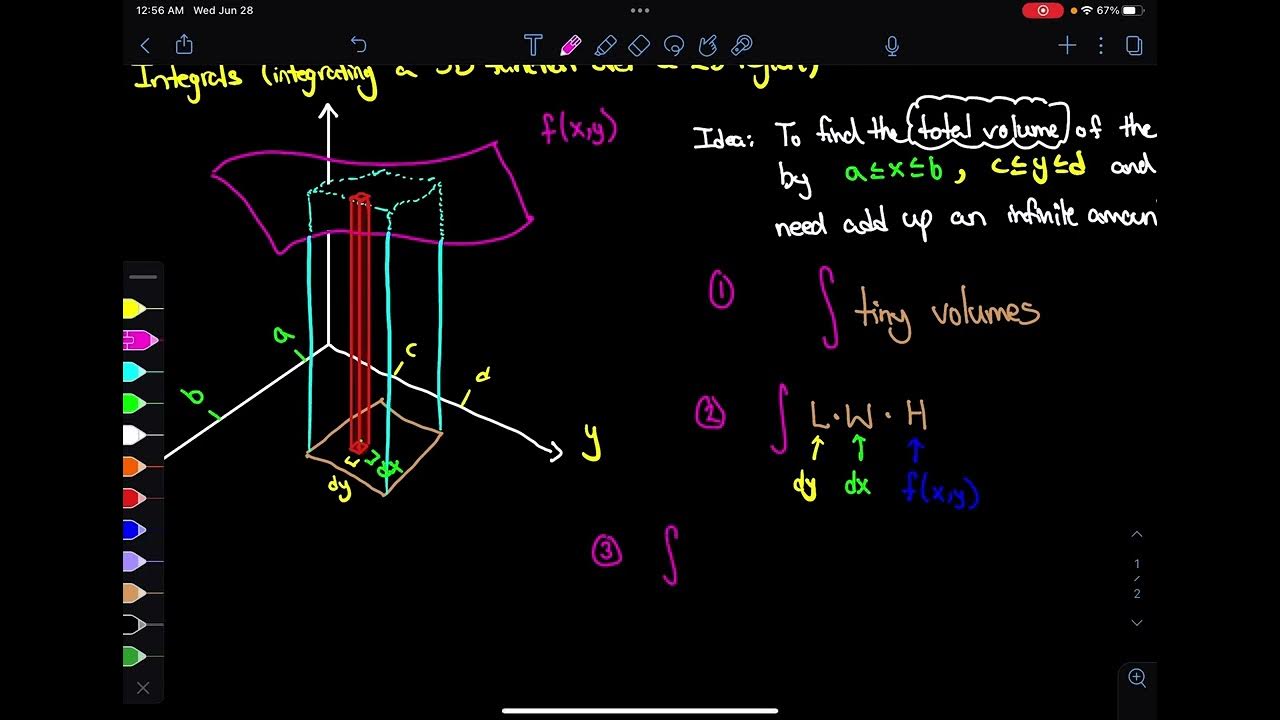 12:56 AM Wed Jun 28
67%
T
Integrals (integrating a 3D function over a 2D region)
f(x,y)
Idea: To find the total volume of the
by a≤x≤b, c≤y≤d and
need add up an infinite amoun
① ∫ tiny volumes
a
c
d
b
② ∫ L·W·H
y
dy dx f(x,y)
dx
dy
③ ∫
1
2